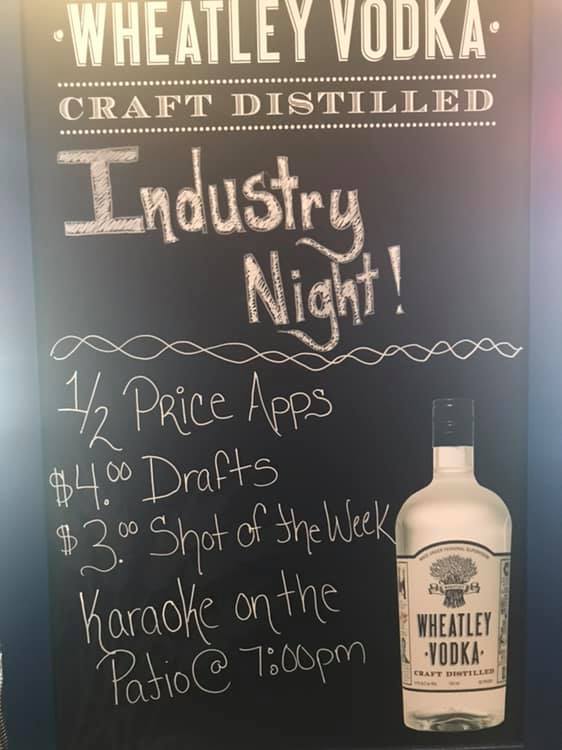 ·WHEATLEY VODKA·
CRAFT DISTILLED
Industry
Night!
1/2 Price Apps
$4.00 Drafts
$3.00 Shot of the Week
Karaoke on the
Patio @ 7:00pm
WHEATLEY
·VODKA·
CRAFT DISTILLED